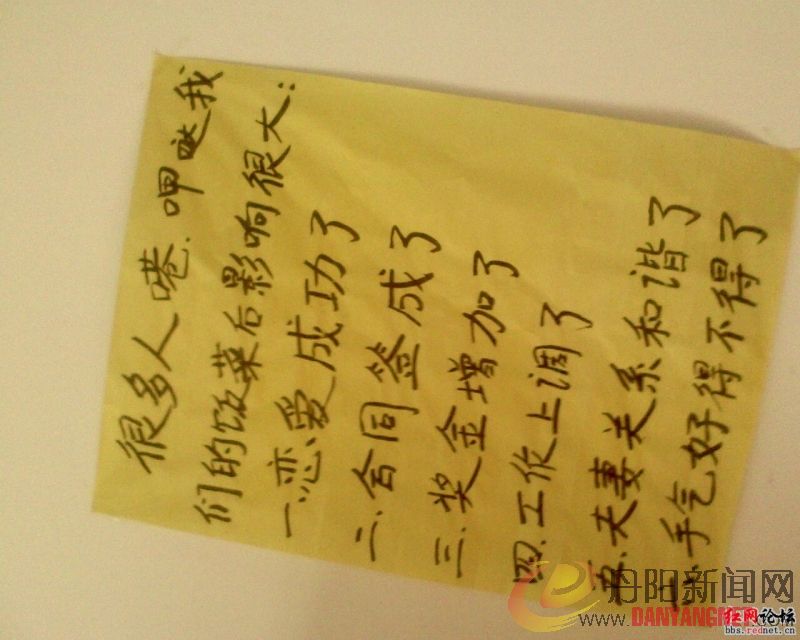 很多人嗯.呷哒我
们的饭菜后影响很大:
一.恋爱成功了
二.合同签成了
三.奖金增加了
四.工作上调了
五.夫妻关系和谐了
六.手气好得不得了
丹阳新闻网
DANYANGNEWS.COM
红网论坛
bbs.rednet.cn